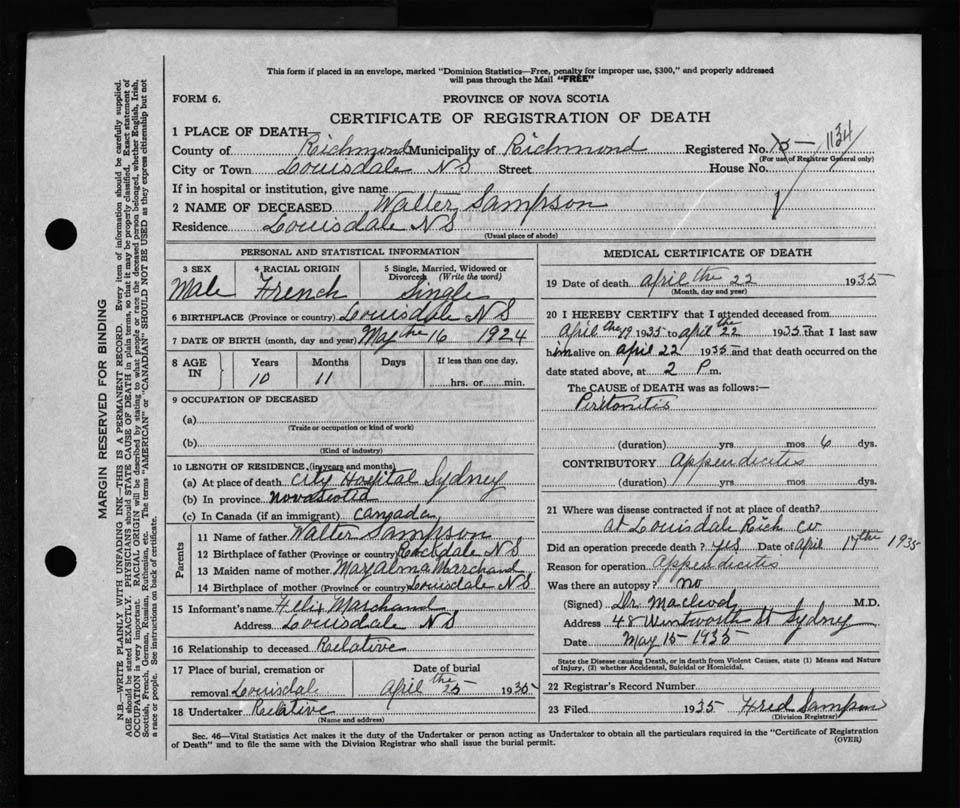 This form if placed in an envelope, marked "Dominion Statistics—Free, penalty for improper use, $300," and properly addressed
will pass through the Mail "FREE"
FORM 6.
PROVINCE OF NOVA SCOTIA
CERTIFICATE OF REGISTRATION OF DEATH
1 PLACE OF DEATH
County of Richmond Municipality of Richmond Registered No. 1134
(For use of Registrar General only)
City or Town Louisdale NS Street House No.
If in hospital or institution, give name
2 NAME OF DECEASED Walter Sampson
Residence Louisdale NS
(Usual place of abode)
PERSONAL AND STATISTICAL INFORMATION
3 SEX 4 RACIAL ORIGIN 5 Single, Married, Widowed or
Divorced (Write the word)
Male French Single
6 BIRTHPLACE (Province or country) Louisdale NS
7 DATE OF BIRTH (month, day and year) May the 16 1924
8 AGE IN Years Months Days If less than one day,
10 11 hrs. or min.
9 OCCUPATION OF DECEASED
(a)
(Trade or occupation or kind of work)
(b)
(Kind of industry)
10 LENGTH OF RESIDENCE, (in years and months)
(a) At place of death City Hospital Sydney
(b) In province Novascotia
(c) In Canada (if an immigrant) Canada
Parents
11 Name of father Walter Sampson
12 Birthplace of father (Province or country) NS
13 Maiden name of mother Mayalma Marchand
14 Birthplace of mother (Province or country) Louisdale NS
15 Informant's name Felix Marchand
Address Louisdale NS
16 Relationship to deceased Relative
17 Place of burial, cremation or Date of burial
removal Louisdal April the 25 1935
18 Undertaker Relative
(Name and address)
MEDICAL CERTIFICATE OF DEATH
19 Date of death April the 22 1935
(Month, day and year)
20 I HEREBY CERTIFY that I attended deceased from
April the 19 1935 to April the 22 1935 that I last saw
him alive on April 22 1935 and that death occurred on the
date stated above, at 2 P m.
The CAUSE of DEATH was as follows:—
Peritonitis
(duration) yrs mos 6 dys.
CONTRIBUTORY Appendicitis
(duration) yrs. mos. dys.
21 Where was disease contracted if not at place of death?
at Louisdale Rich co
Did an operation precede death? yes Date of April 17the 1935
Reason for operation Appendicitis
Was there an autopsy? no
(Signed) Dr. Macleod M.D.
Address 48 Wentworth St Sydney
Date May 15 - 1935
State the Disease causing Death, or in death from Violent Causes, state (1) Means and Nature
of Injury, (2) whether Accidental, Suicidal or Homicidal.
22 Registrar's Record Number
23 Filed 1935 Fred Sampson
(Division Registrar)
Sec. 46—Vital Statistics Act makes it the duty of the Undertaker or person acting as Undertaker to obtain all the particulars required in the "Certificate of Registration
of Death" and to file the same with the Division Registrar who shall issue the burial permit. (OVER)
MARGIN RESERVED FOR BINDING
N.B.—WRITE PLAINLY WITH UNFADING INK—THIS IS A PERMANENT RECORD. Every item of information should be carefully supplied.
AGE should be stated EXACTLY. PHYSICIANS should STATE CAUSE OF DEATH in plain terms, so that it may be properly classified. Exact statement of
OCCUPATION is very important. RACIAL ORIGIN will be described by stating to what people or race the deceased person belonged, whether English, Irish,
Scottish, French, German, Russian, Ruthenian, etc. The terms "AMERICAN" or "CANADIAN" SHOULD NOT BE USED as they express citizenship but not
a race or people. See instructions on back of certificate.